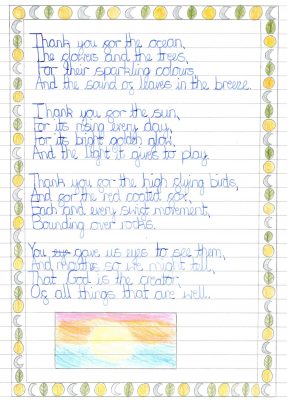 Thank you for the ocean,
The flowers and the trees,
For their sparkling colours,
And the sound of leaves in the breeze.
Thank you for the sun,
For its rising every day,
For its bright golden glow,
And the light it gives to play.
Thank you for the high flying birds,
And for the red coated fox,
Each and every swift movement,
Bounding over rocks.
You gave us eyes to see them,
And mouths so we might tell,
That God is the creator,
Of all things that are well.